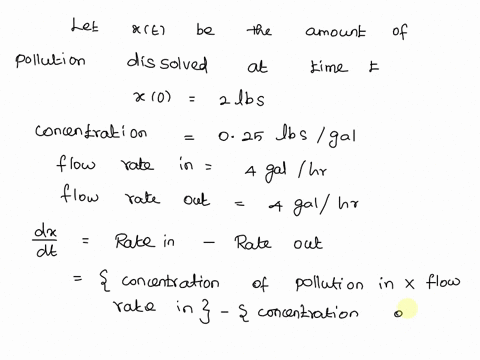 Let x(t) be the amount of
pollution dissolved at time t
x(0) = 2 lbs
concentration = 0.25 lbs/gal
flow rate in = 4 gal/hr
flow rate out = 4 gal/hr
dx/dt = Rate in - Rate out
= { concentration of pollution in x flow
rate in } - { concentration o